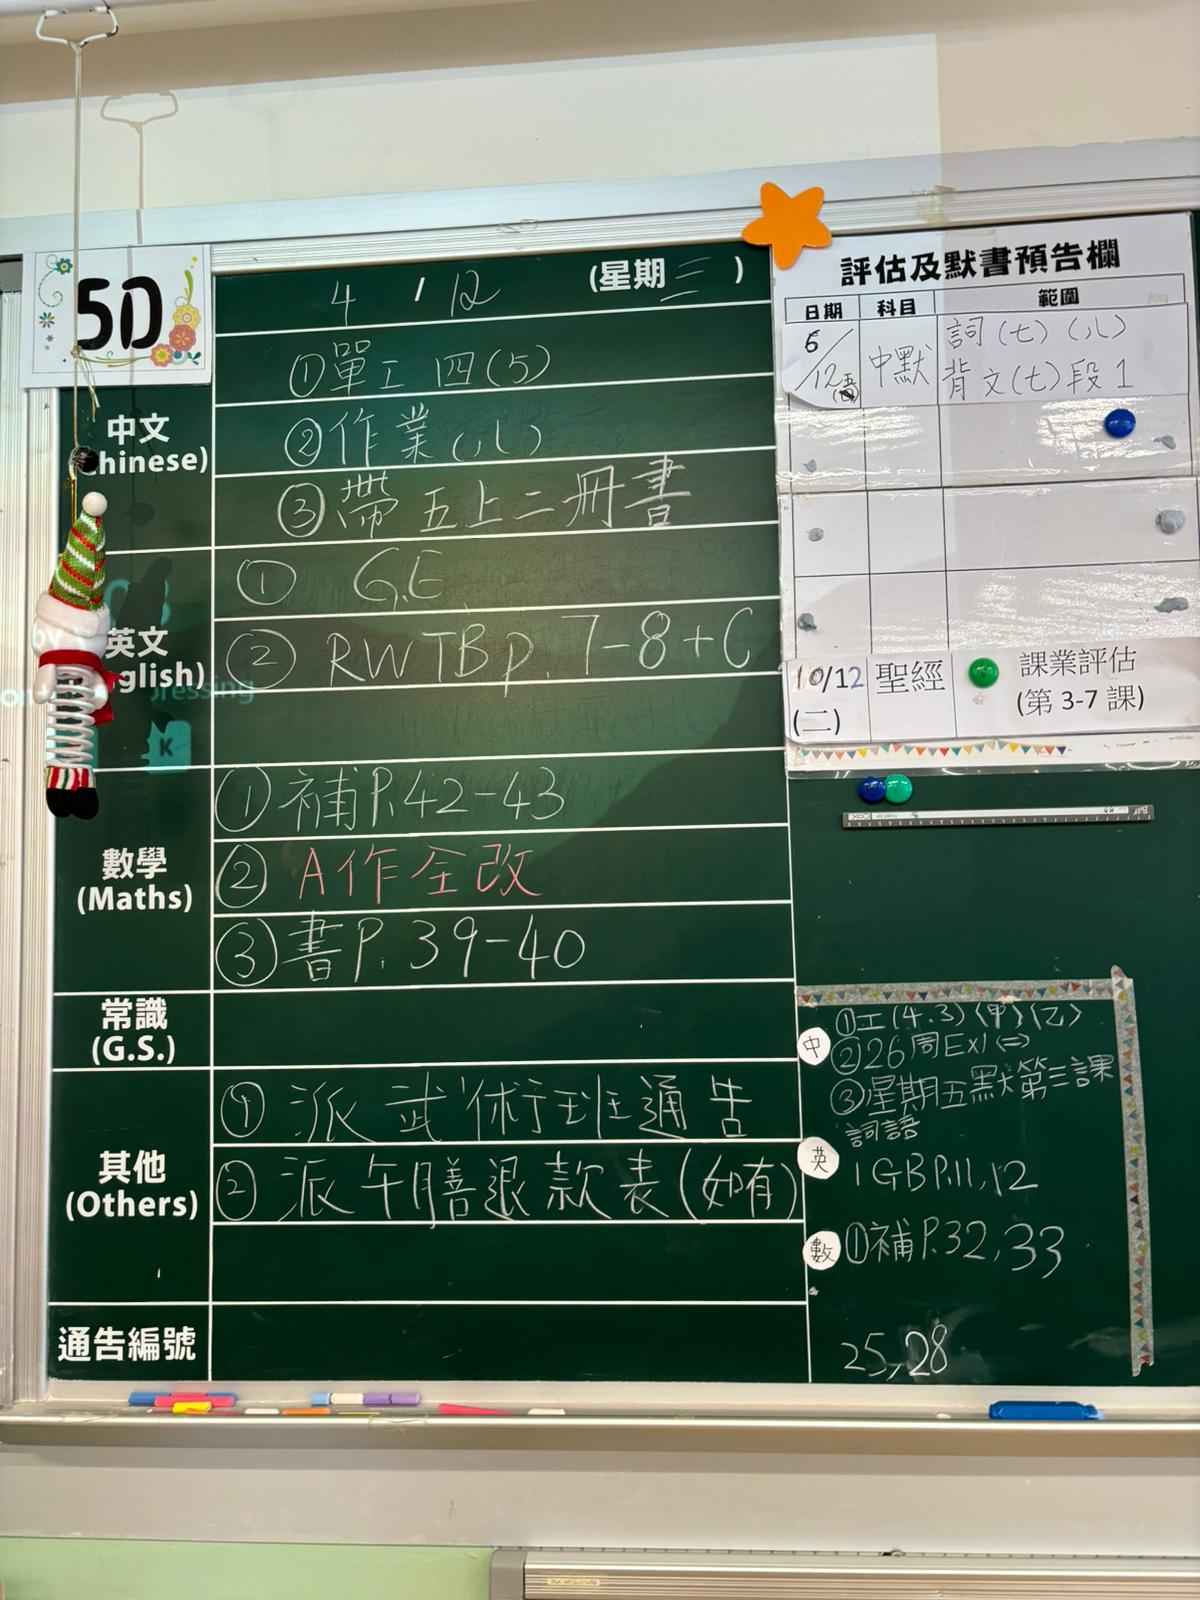 5D
4 / 12 (星期三)
中文
(Chinese)
①單工 四(5)
②作業(八)
③帶五上二冊書
英文
(English)
① G.E
② RWTB p. 7-8+C
K
數學
(Maths)
①補P.42-43
②A作全改
③書P.39-40
常識
(G.S.)
其他
(Others)
①派武術班通告
②派午膳退款表(如有)
通告編號
評估及默書預告欄
日期 科目 範圍
6/12 中默 詞(七)(八)
背文(七)段1
10/12 聖經 課業評估
(二) (第 3-7 課)
中 ①工(4.3)〈甲〉〈乙〉
②26周Ex1
③星期五默第三課
詞語
英 1 GB P.11,12
數 ①補P.32,33
25,28